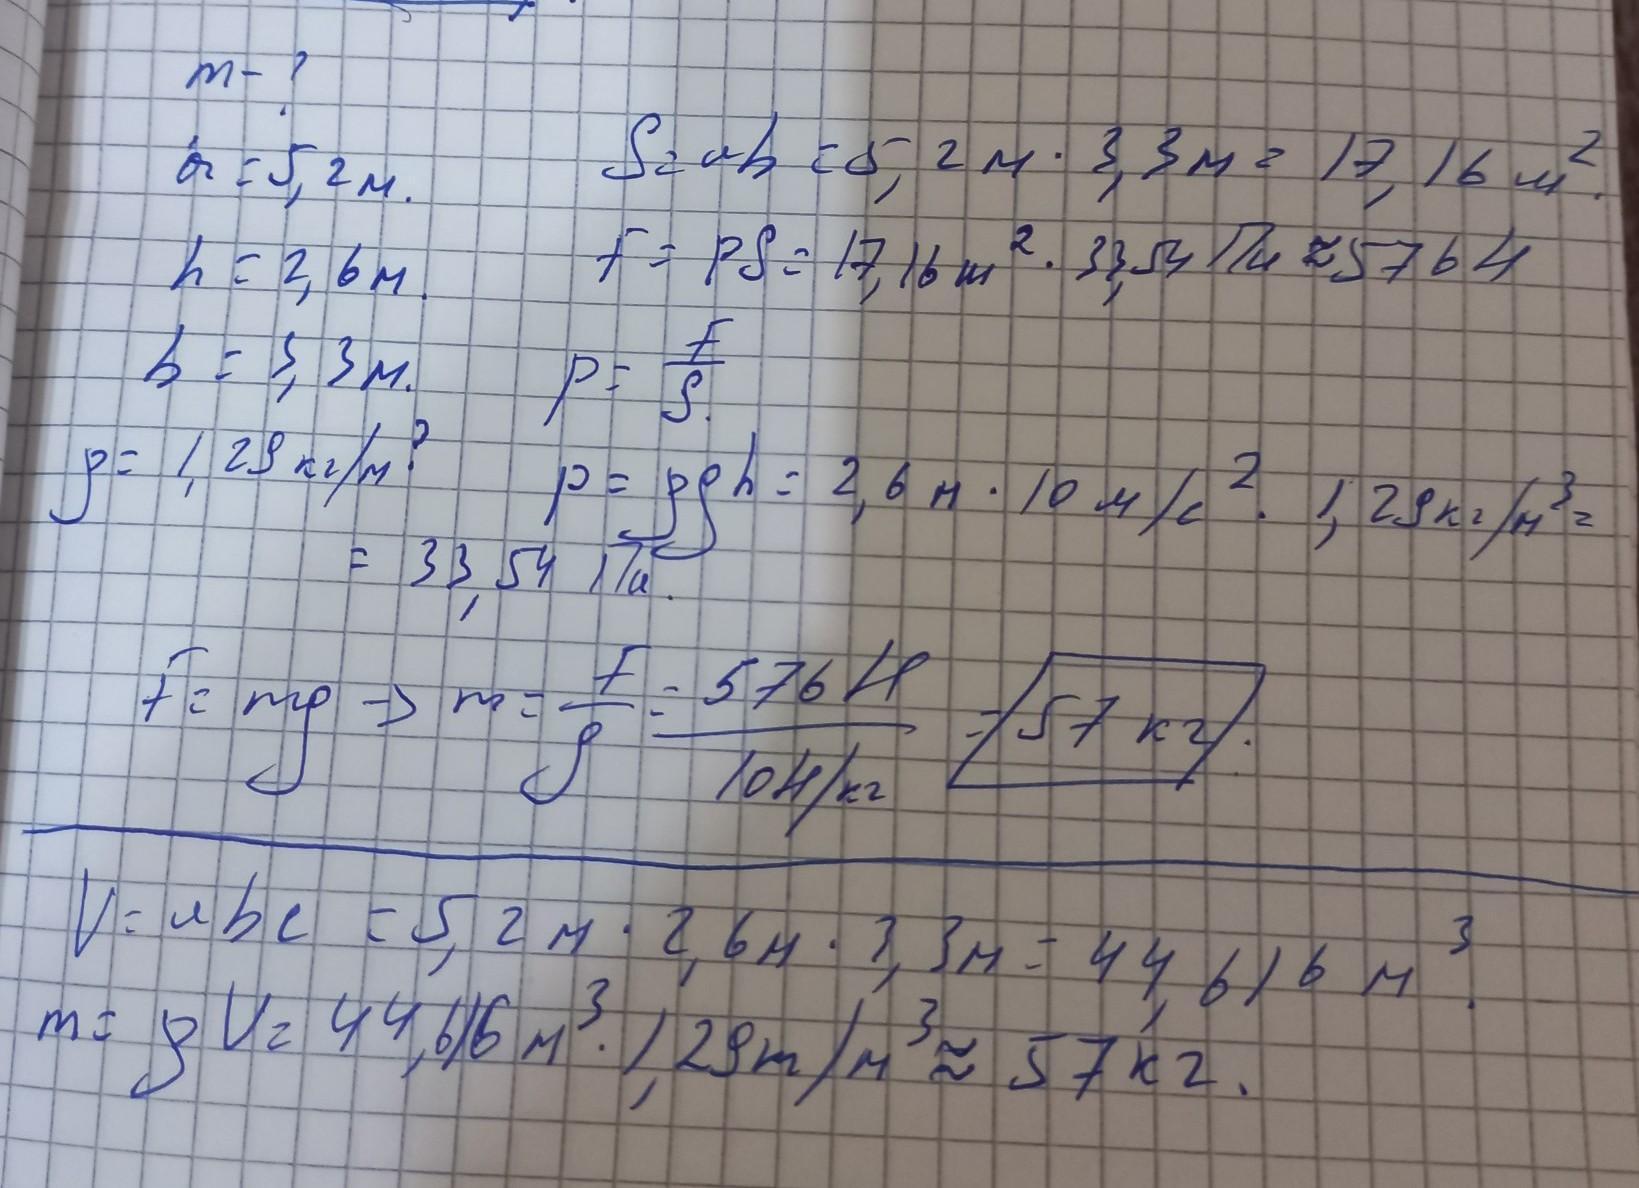 m - ?
a = 5,2 м.
h = 2,6 м.
b = 3,3 м.
ρ = 1,29 кг/м³
S = ab = 5,2 м · 3,3 м = 17,16 м².
F = pS = 17,16 м² · 33,54 Па ≈ 576 Н
p = F/S.
p = ρgh = 2,6 м · 10 м/с² · 1,29 кг/м³ =
= 33,54 Па.
F = mg → m = F/g = 576 Н / 10 Н/кг = 57 кг.
V = abc = 5,2 м · 2,6 м · 3,3 м = 44,616 м³.
m = ρV = 44,616 м³ · 1,29 т/м³ ≈ 57 кг.